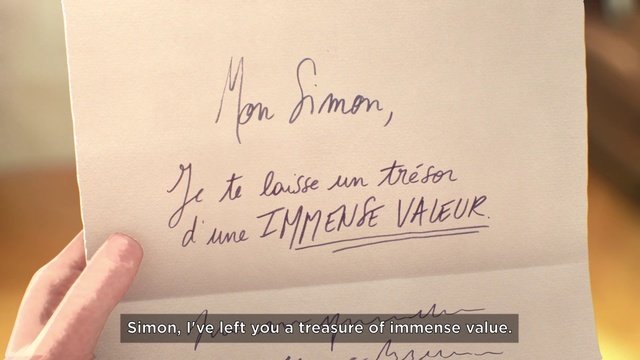 Mon Simon,
Je te laisse un trésor
d'une IMMENSE VALEUR.
Simon, I've left you a treasure of immense value.